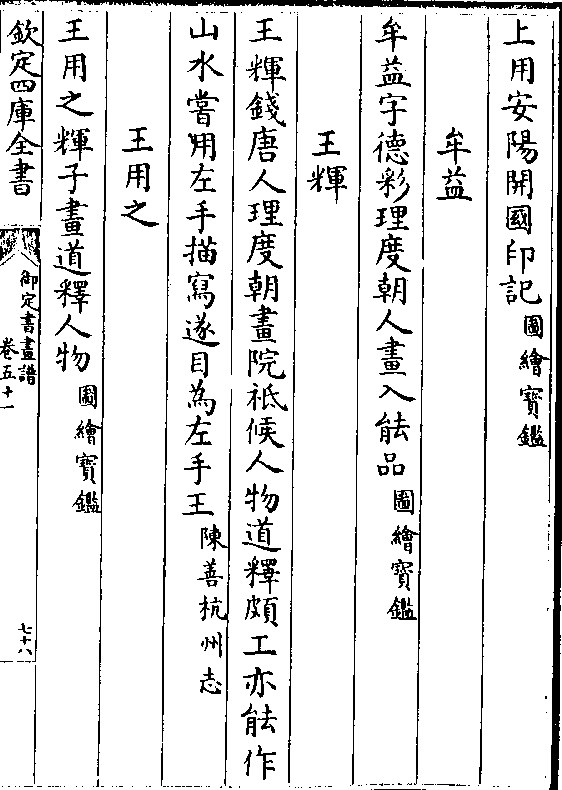 上用安陽開國印記圖繪寳鑑
牟益
牟益字德彩理度朝人畫入能品圖繪寳鑑
王輝
王輝錢唐人理度朝畫院祗候人物道釋頗工亦能作
山水嘗用左手描寫遂目為左手王陳善杭州志
王用之
王用之輝子畫道釋人物圖繪寳鑑
欽定四庫全書
御定書畫譜
卷五十一
七十八